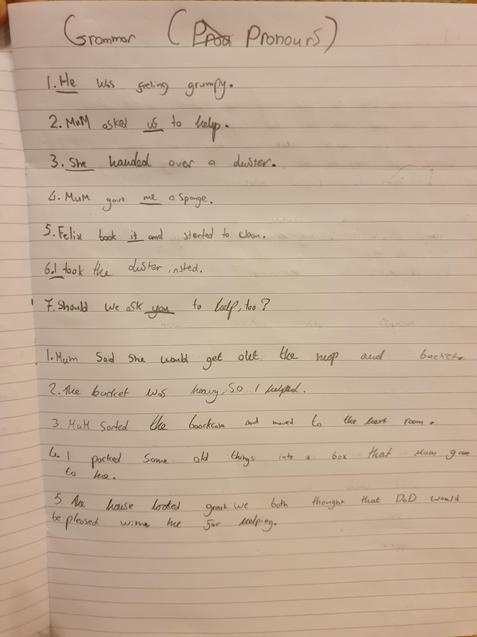 Grammar (Pronouns)
1. He was feeling grumpy.
2. MuM asked us to help.
3. She handed over a duster.
4. MuM gave me a sponge.
5. Felix took it and started to clean.
6. I took the duster insted.
7. Should we ask you to help, too?
1. Mum Said She would get out the mop and bucket.
2. The bucket was heavy, SO I helped.
3. MuM Sorted the and moved to the next room.
4. I packed Some old things into a box that Mum gave
to me.
5 The house looted great we both thought that DaD would
be pleased me for helping.